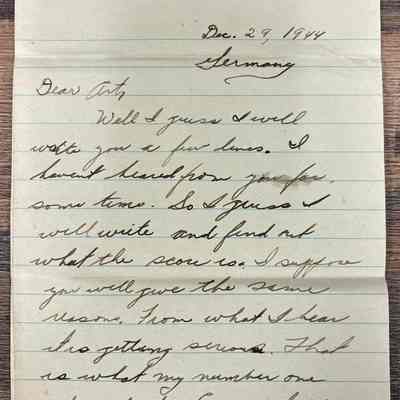 Dec. 29, 1944
Germany
Dear Art,
Well I guess I will
write you a few lines. I
havent heared from you for
some time. So I guess I
will write and find out
what the score is. I suppose
you will give the same
reason. From what I hear
I is getting serious. That
is what my number one